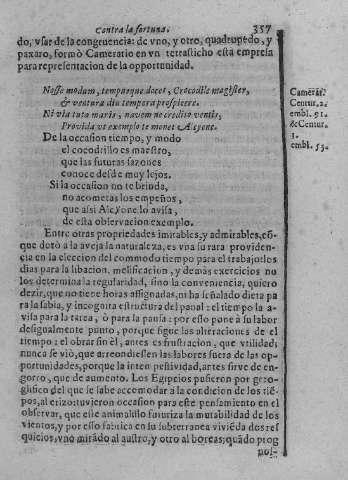 Contra la fortuna. 357
do, vsar de la congruencia: de vno, y otro, quadrupedo, y
paxaro, formò Camerario en vn tetrasticho esta empresa
para representacion de la opportunidad.
Nosse modum, tempusque docet, Crocodile magister,
& ventura diu tempora prospicere.
Ni via tuta maris, navem ne credito ventis,
Provida vt exemplo te monet Alcyone.
De la occasion tiempo, y modo
el cocodrillo es maestro,
que las futuras sazones
conoce desde muy lejos.
Si la occasion no te brinda,
no acometas los empeños,
que assi Alcyone lo avisa,
de esta observacion exemplo.
Camerar.
Centur. 2.
embl. 91.
& Centur.
3.
embl. 55.
Entre otras propriedades imitables, y admirables, cõ-
que dotò a la aveja la naturaleza, es vna su rara providen-
cia en la eleccion del commodo tiempo para el trabajo: los
dias para la libacion, melificacion, y demàs exercicios no
los determina la regularidad, sino la conveniencia, quiero
dezir, que no tiene horas assignadas, ni ha señalado dieta pa
ra la sabia, y incognita estructura del panal: el tiempo la a-
visa para la tarea, ò para la pausa: por esso pone a su labor
desigualmente punto, porque sigue las alteraciones de el
tiempo: el obrar sin èl, antes es frustracion, que vtilidad;
nunca se viò, que arrendiessen las labores fuera de las op-
portunidades, porque la intempestividad, antes sirve de en-
gorro, que de aumento. Los Egipcios pusieron por gero-
glifico del que se sabe accomodar a la condicion de los tiẽ-
pos, al erizo: tuvieron occasion para este pensamiento en el
observar, que este animalillo futuriza la mutabilidad de los
vientos, y por esso fabrica en su subterranea vivieda dos res
quicios, vno mirãdo al austro, y otro al boreas; quãdo prog
nos-